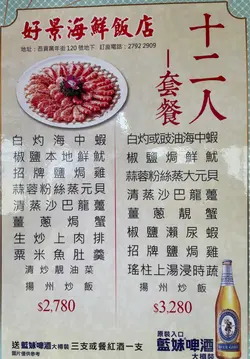 好景海鮮飯店
地址：西貢萬年街120號地下 訂座電話：2792 2909
十二人
一套餐
白灼海中蝦
椒鹽本地鮮魷
招牌鹽焗雞
蒜蓉粉絲蒸元貝
清蒸沙巴龍躉
薑蔥焗蟹
生炒上肉排
粟米魚肚羹
清炒靚油菜
揚州炒飯
$2,780
白灼或豉油海中蝦
椒鹽焗鮮魷
蒜蓉粉絲蒸大元貝
清蒸沙巴龍躉
薑蔥靚蟹
椒鹽瀨尿蝦
招牌鹽焗雞
瑤柱上湯浸時蔬
揚州炒飯
$3,280
送 藍妹啤酒大樽裝 三支或餐紅酒一支
圖片僅供參考
原裝入口
藍妹啤酒
大樽裝